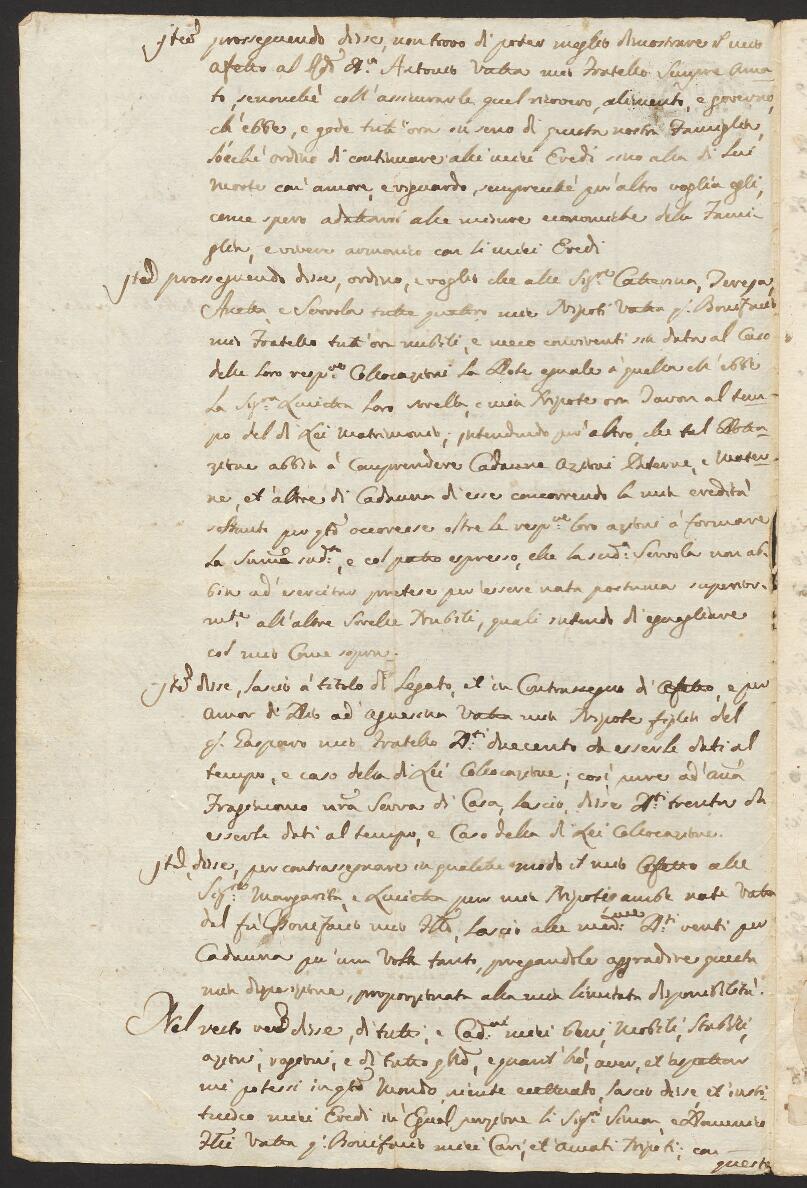 Item prosseguendo disse, non trovo di poter meglio dimostrare il mio
afetto al Antonio Vatta mio Fratello sempre ama-
to, senonchè coll'assicurarle quel ricovero, alimento, e governo,
ch'ebbe, e gode tutt'ora in seno di questa nostra Famiglia,
ordino di continuare alli miei Eredi sino alla di Lui
morte con amore, e riguardo, semprechè per altro voglia egli,
come spero adattarsi alle misure economiche della Fami
glia, e vivere armonico con li miei Eredi
prosseguendo disse, ordino, e voglio che alle Sig:re Catterina, Teresa,
Anetta, e tutte quattro mie Nipoti Vatta q: Bonifacio
mio Fratello tutt'ora nubili, e meco conviventi sia data al Caso
delle loro resp:ve Collocazioni La Dote eguale à quella ch'ebbe
La Sig:ra Luietta loro sorella, e mia Nipote ora al tem-
po del di Lei Matrimonio; intendendo per altro, che tal Dotta-
zione abbia à Comprendere Cadaune Azioni Paterne, e Mater-
ne, et altre di Cadauna di esse concorrendo la mia eredità
soltanto per q.to occoresse oltre le resp:ve loro azioni à formare
La Suma sud:a, e col patto espresso, che la sud:a non ab-
bia ad esercitar pretese per essere nata postuma superior-
m:te all'altre Sorelle Nubili, quali intendo di eguagliare
col mio Come sopra.
disse, lascio à titolo di Legato, et in Contrassegno di afetto, e per
Amor di Dio ad Agnesina Vatta mia Nipote figlia del
q: Gasparo mio Fratello D:ti duecento da esserle dati al
tempo, e caso della di Lei Collocazione; così pure ad
Fragiacomo Serva di Casa, lascio, disse D:ti trenta da
esserle dati al tempo, e Caso della di Lei Collocazione.
disse, per contrassegnare in qualche modo il mio Afetto alle
Sig:re Margarita, e Luietta pur mie Nipoti ambe nate Vatta
del fù Bonifacio mio Lascio alle med:e due D:ti venti per
Cadauna per una Volta tanto, pregandole aggradire questa
mia disposizione, proporzionata alla mia limitata disponibilità.
Nel resto disse, di tutti, e Cad:ni miei beni, Mobili, Stabili,
azioni, ragioni, e di tutto e quant'hò, aver, et aspettar
mi potessi in Mondo, niente eccettuato, lascio disse et insti-
tuisco miei Eredi in Egual porzione li Sig:ri Simon, e Domenico
Vatta q: Bonifacio miei Cari, et Amati Nipoti; con
questo